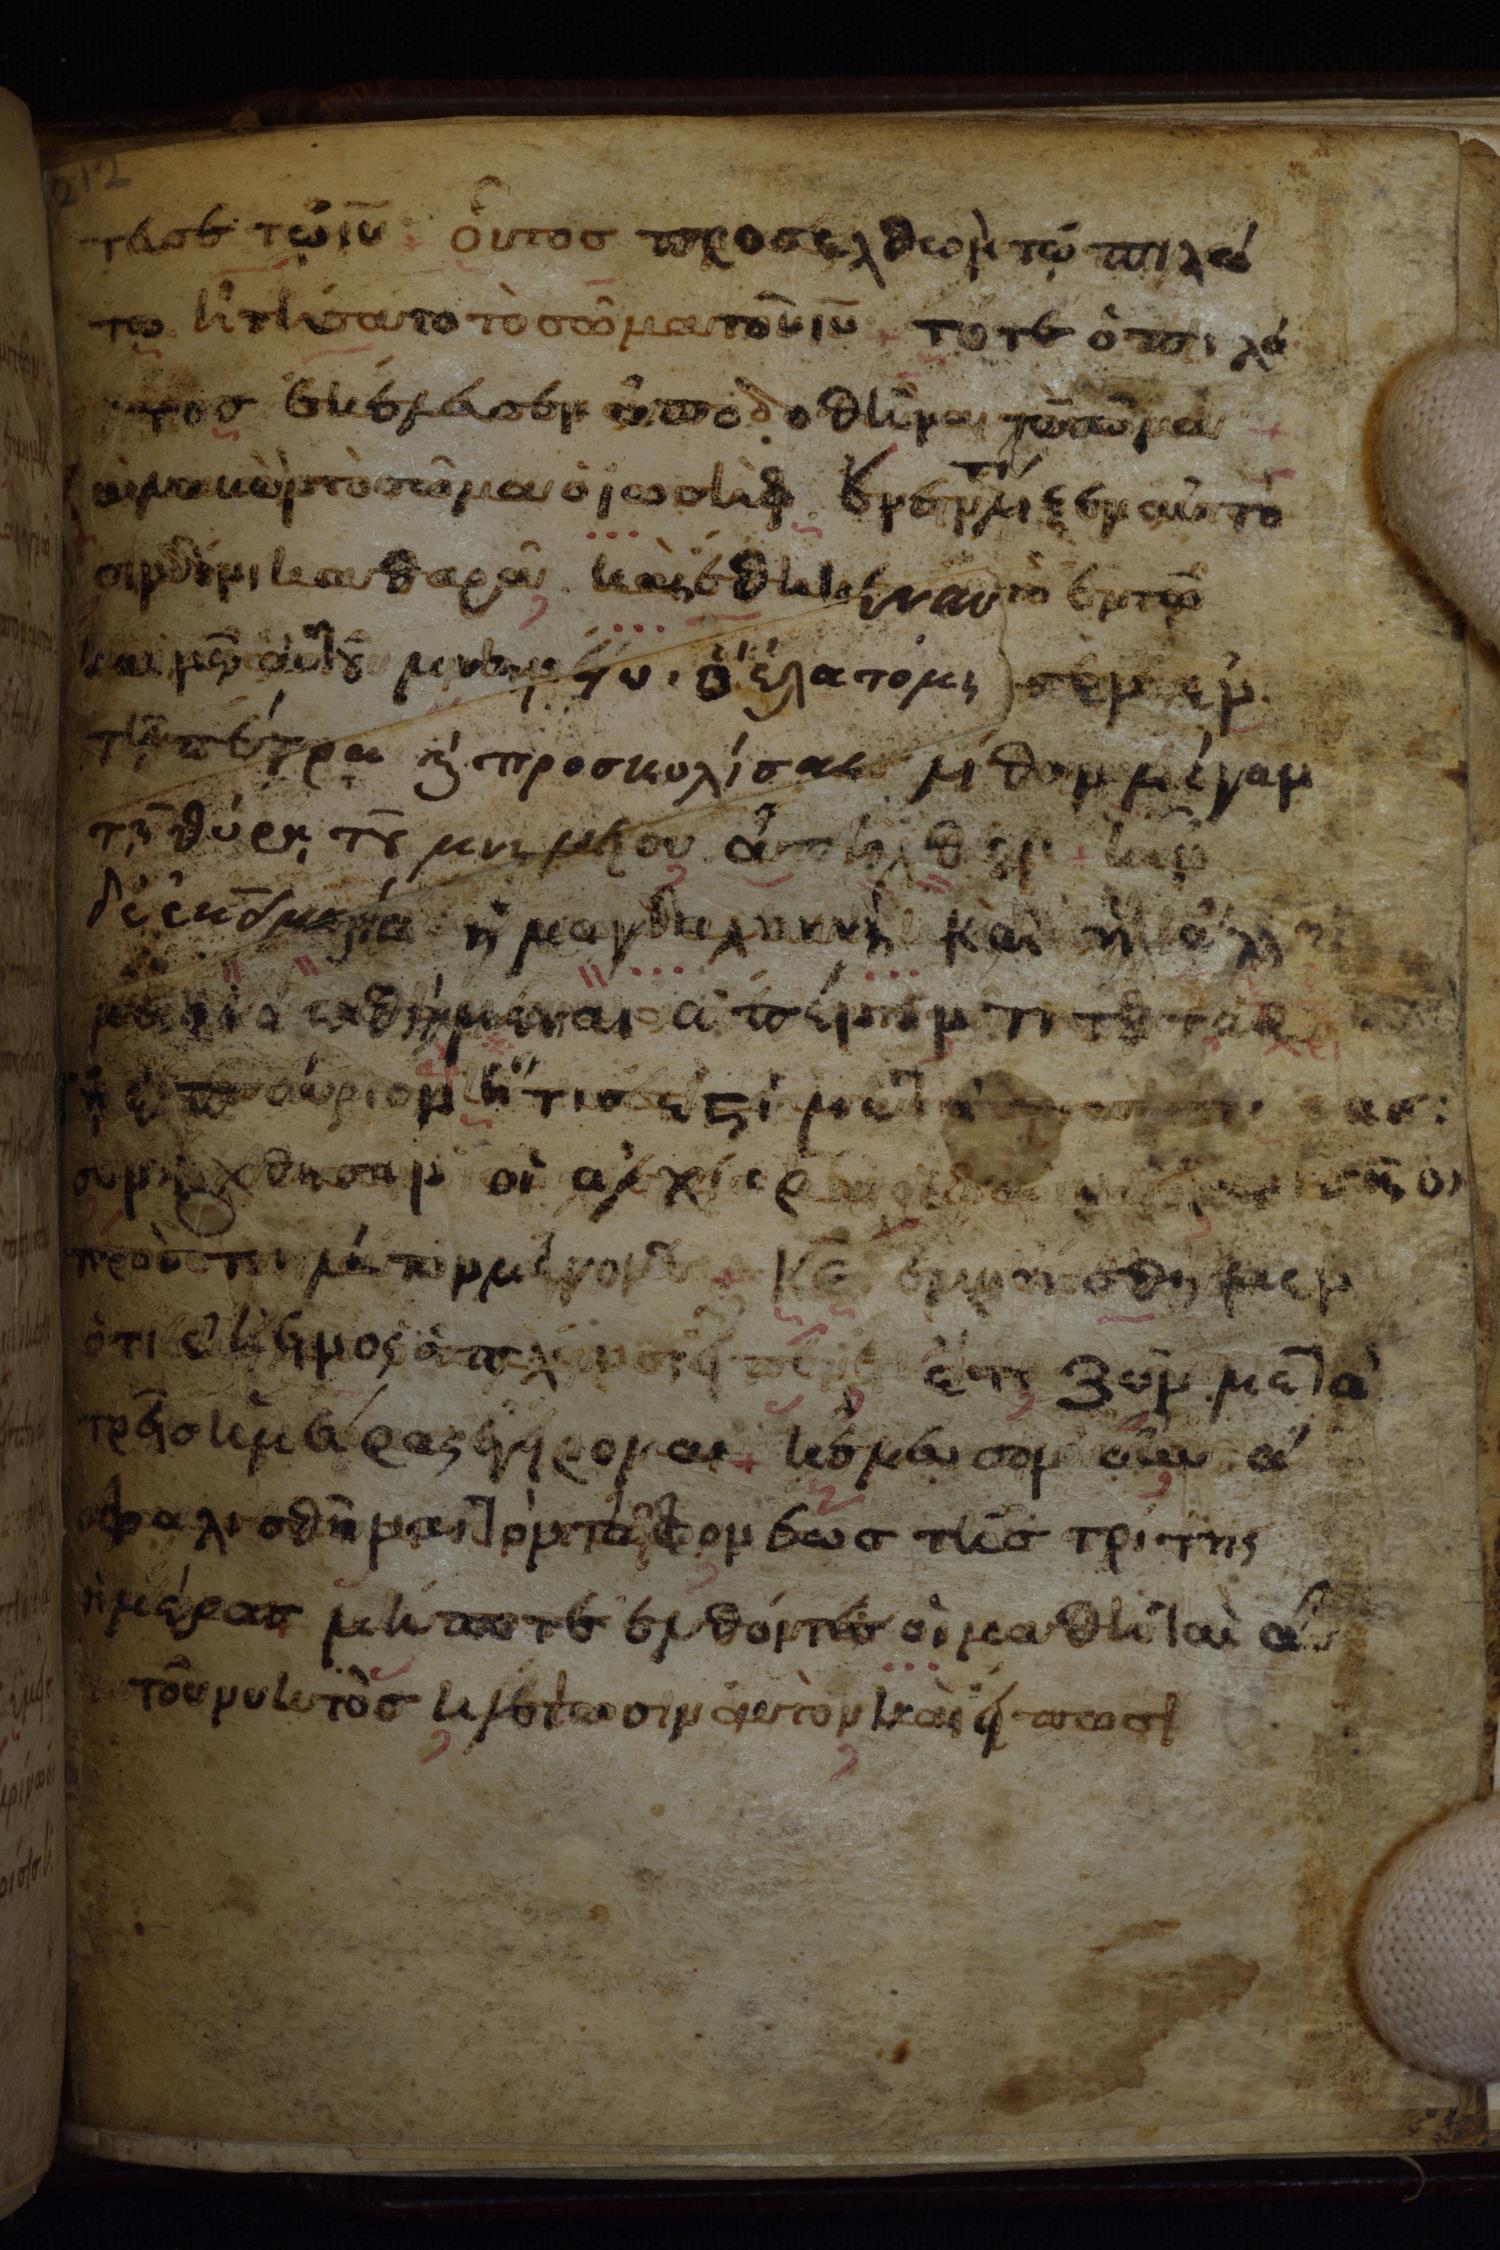 212
τευσε τῷ ιυ οὗτος προσελθὼν τῷ πιλά
τω ἠτήσατο τὸ σῶμα τοῦ ιυ τότε ὁ πιλά
τος ἐκέλευσεν ἀποδοθῆναι τὸ σῶμα
καὶ λαβὼν τὸ σῶμα ὁ ἰωσὴφ ἐνετύλιξεν αὐτὸ
σινδόνι καθαρᾶ καὶ ἔθηκεν αὐτὸ ἐν τῶ
καινῶ αὐτοῦ μνημείω ὃ ἐλατόμησεν ἐν
τῆ πέτρα καὶ προσκυλίσας λίθον μέγαν
τῆ θύρᾳ τοῦ μνημείου ἀπῆλθεν ἦν
δὲ ἐκεῖ μαρία ἡ μαγδαληνὴ καὶ ἡ ἄλλη
μαρία καθήμεναι ἀπέναντι τοῦ τάφ
τῆ ἐπαύριον ἥτις ἐστὶ μετὰ
συνήχθησαν οἱ ἀρχιερ οἱ
πρὸς πιλάτον λέγοντες κε ἐμνήσθημεν
ὅτι ἐκεῖνος ὁ πλάνος εἶπεν ἔτι ζῶν μετὰ
τρεῖς ἡμέρας ἐγείρομαι κέλευσον οὖν ἀ
σφαλισθῆναι τὸν τάφον ἕως τῆς τρίτης
ἡμέρας μήποτε ἐλθόντες οἱ μαθηταὶ αὐ
τοῦ νυκτὸς κλέψωσιν αὐτὸν καὶ εἴπωσι